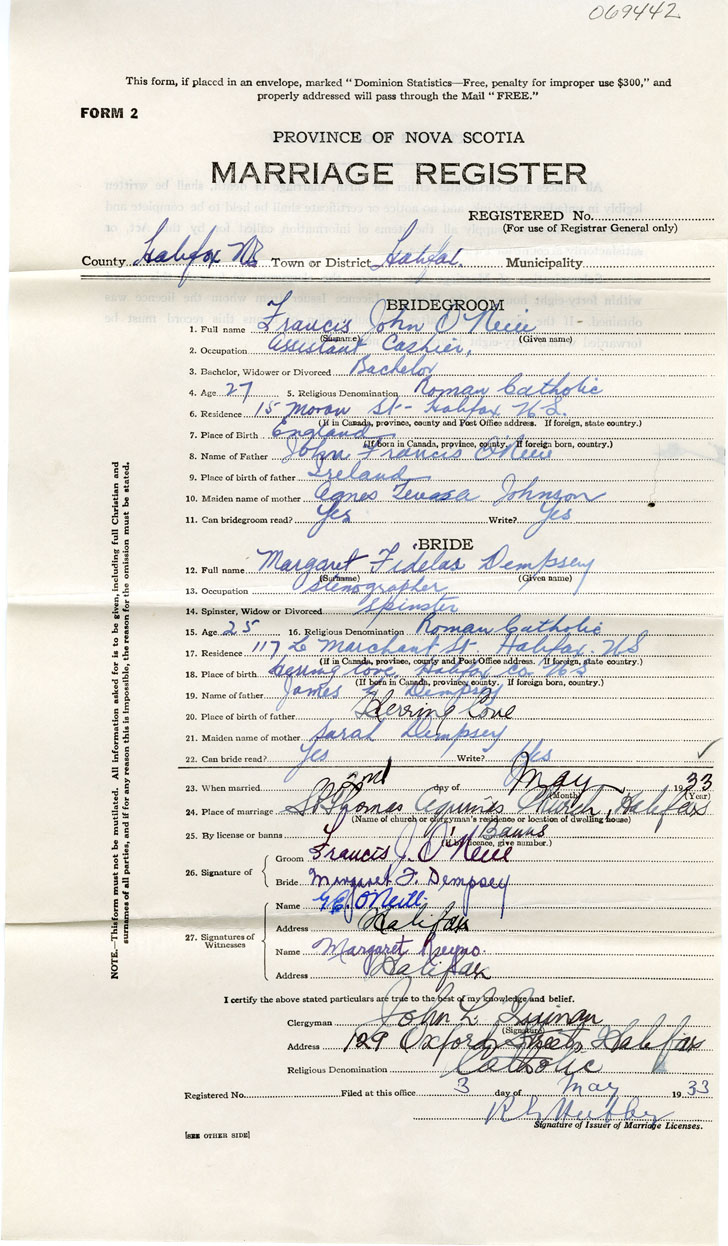 069442
This form, if placed in an envelope, marked "Dominion Statistics—Free, penalty for improper use $300," and
properly addressed will pass through the Mail "FREE."
FORM 2
PROVINCE OF NOVA SCOTIA
MARRIAGE REGISTER
REGISTERED No.
(For use of Registrar General only)
County Halifax NS Town or District Halifax. Municipality
BRIDEGROOM
1. Full name Francis John O'Neill
(Surname) (Given name)
2. Occupation Assistant Cashier,
3. Bachelor, Widower or Divorced Bachelor
4. Age 27 5. Religious Denomination Roman Catholic
6. Residence 15 Moran St - Halifax N.S.
(If in Canada, province, county and Post Office address. If foreign, state country.)
7. Place of Birth England
(If born in Canada, province, county. If foreign born, country.)
8. Name of Father John Francis O'Neill
9. Place of birth of father Ireland
10. Maiden name of mother Agnes Teresa Johnson
11. Can bridegroom read? Yes Write? Yes
BRIDE
12. Full name Margaret Fidelas Dempsey
(Surname) (Given name)
13. Occupation Stenographer
14. Spinster, Widow or Divorced Spinster
15. Age 25 16. Religious Denomination Roman Catholic
17. Residence 117 Le Marchant St - Halifax. N.S
(If in Canada, province, county and Post Office address. If foreign, state country.)
18. Place of birth Herring Cove, Halifax Co. N.S
(If born in Canada, province, county. If foreign born, country.)
19. Name of father James Dempsey
20. Place of birth of father Herring Cove
21. Maiden name of mother Sarah Dempsey
22. Can bride read? Yes Write? Yes
23. When married 2nd day of May 1933
(Month) (Year)
24. Place of marriage St Thomas Aquinas Church, Halifax
(Name of church or clergyman's residence or location of dwelling house)
25. By license or banns Banns
(If by licence, give number.)
26. Signature of
Groom Francis J. O'Neill
Bride Margaret F. Dempsey
27. Signatures of Witnesses
Name O'Neill
Address Halifax
Name Margaret
Address Halifax
I certify the above stated particulars are true to the best of my knowledge and belief.
Clergyman John L. Quinan
(Signature)
Address 129 Oxford Street, Halifax
Religious Denomination Catholic
Registered No. Filed at this office 3 day of May 1933
Signature of Issuer of Marriage Licenses.
[SEE OTHER SIDE]
NOTE.—This form must not be mutilated. All information asked for is to be given, including full Christian and
surnames of all parties, and if for any reason this is impossible, the reason for the omission must be stated.